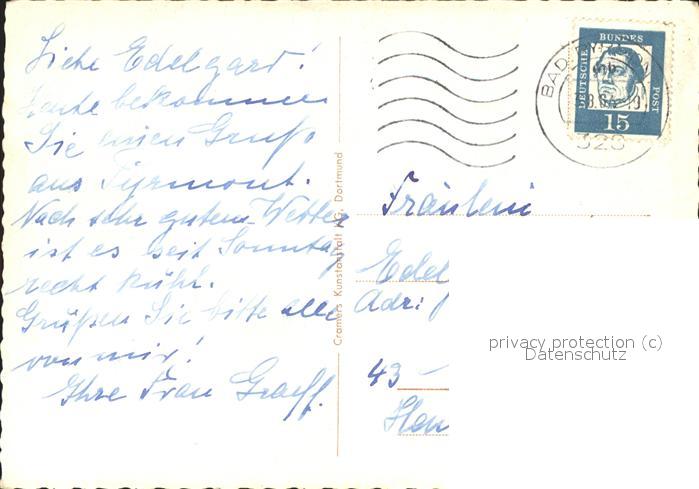 Liebe Edelgard!
Heute bekommen
Sie einen Gruß
aus Pyrmont.
Nach sehr gutem Wetter
ist es seit Sonntag
recht kühl.
Grüßen Sie bitte alle
von mir!
Ihre Frau Graeff.
Cramers Kunstanstalt KG. Dortmund
BAD PYRMONT
328
DEUTSCHE BUNDES POST
15
Fräulein
Edel
Adr:
43 –
privacy protection (c)
Datenschutz